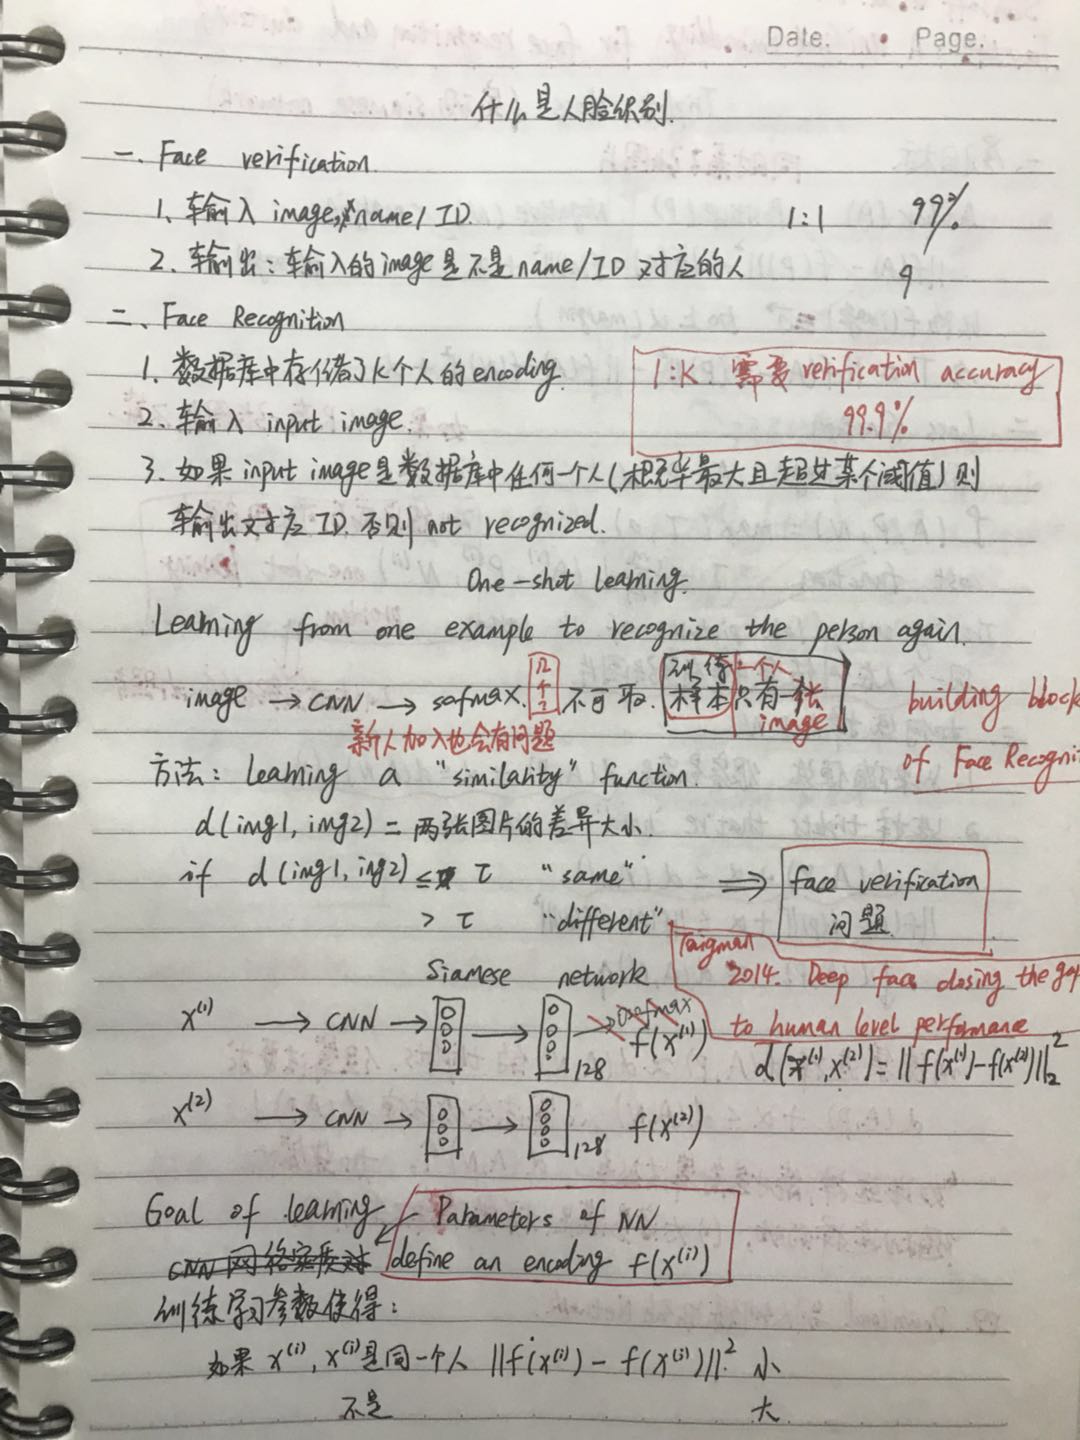 Date. Page.
什么是人脸识别.
一. Face verification.
1、输入 image, name/ID. 1:1 99%
2. 输出: 输入的image是不是name/ID 对应的人 9
二、Face Recognition
1. 数据库中存储了K个人的encoding.
1:K 需要 verification accuracy
99.9%
2. 输入 input image.
3. 如果 input image是数据库中任何一个人(概率最大且超过某个阈值) 则
输出对应 ID. 否则 not recognized.
One-shot learning.
Learning from one example to recognize the person again.
image → CNN → sofmax. 几个? 不可取. 训练样本 一个人只有一张 image
新人加入也会有问题
building block
of Face Recogni
方法: learning a "similarity" function.
d(img1, img2) = 两张图片的差异大小.
if d(img1, img2) ≤ τ "same" ⇒ face verification
> τ "different" 问题.
Siamese network
Taigman 2014. Deep face closing the gap
to human level performance
x⁽¹⁾ → CNN → → 128 softmax f(x⁽¹⁾)
d(x⁽¹⁾, x⁽²⁾) = ||f(x⁽¹⁾) - f(x⁽²⁾)||₂²
x⁽²⁾ → CNN → → 128 f(x⁽²⁾)
Goal of learning ← Parameters of NN
define an encoding f(x⁽ⁱ⁾)
CNN 网络实质对
训练学习参数使得:
如果 x⁽ⁱ⁾, x⁽ʲ⁾是同一个人 ||f(x⁽ⁱ⁾) - f(x⁽ʲ⁾)||² 小
不是 大